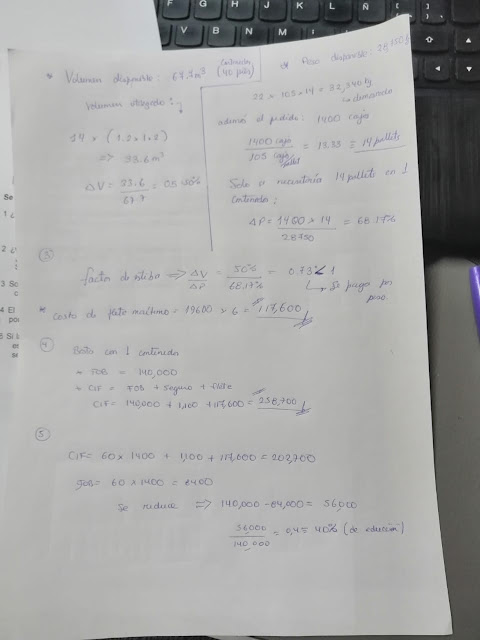 * Volumen disponible: 67.7 m³ Contenedor (40 pies)
Volumen utilizado:
14 x (1.2 x 1 x 2)
=> 33.6 m³
ΔV = 33.6 / 67.7 = 0.50%
* Peso disponible: 28,750
22 x 105 x 14 = 32,340 kg
además el pedido: 1400 cajas
1400 cajas / 105 cajas/pallet = 13.33 ≡ 14 pallets
Solo se necesitaría 14 pallets en 1
contenedor:
ΔP = 1400 x 14 / 28750 = 68.17%
3
factor de estiba => ΔV / ΔP = 50% / 68.17% = 0.73 < 1
Se paga por
peso.
* costo de flete marítimo = 19600 x 6 = 117,600
4
Basta con 1 contenedor
* FOB = 140,000
* CIF = FOB + Seguro + flete
CIF = 140,000 + 1,100 + 117,600 = 258,700
5
CIF = 60 x 1400 + 1,100 + 117,600 = 202,700
FOB = 60 x 1400 = 8400
Se reduce => 140,000 - 84,000 = 56,000
56,000 / 140,000 = 0,4 = 40% (de reducción)
F5
F6
F7
F8
V
B
N
M
L
Ñ
Se
1 ¿
2 ¿
3 So
4 El
po
5 Si l
es
se